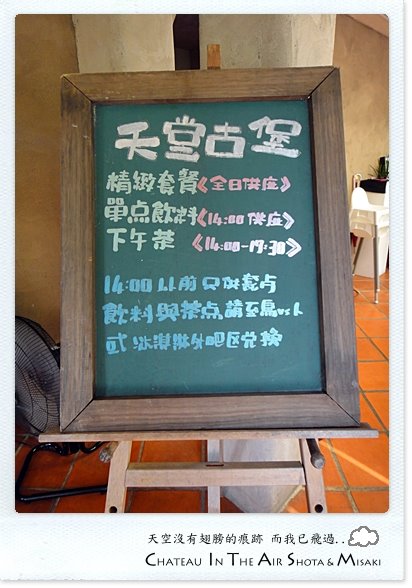 天堂古堡
精緻套餐《全日供应》
單点飲料《14:00 供应》
下午茶 《14:00-17:30》
14:00 以前 只供套占
飲料與茶点 請至鳥vs人
或 冰淇淋外吧区兑換
天空沒有翅膀的痕跡 而我已飛過..
CHATEAU IN THE AIR SHOTA & MISAKI